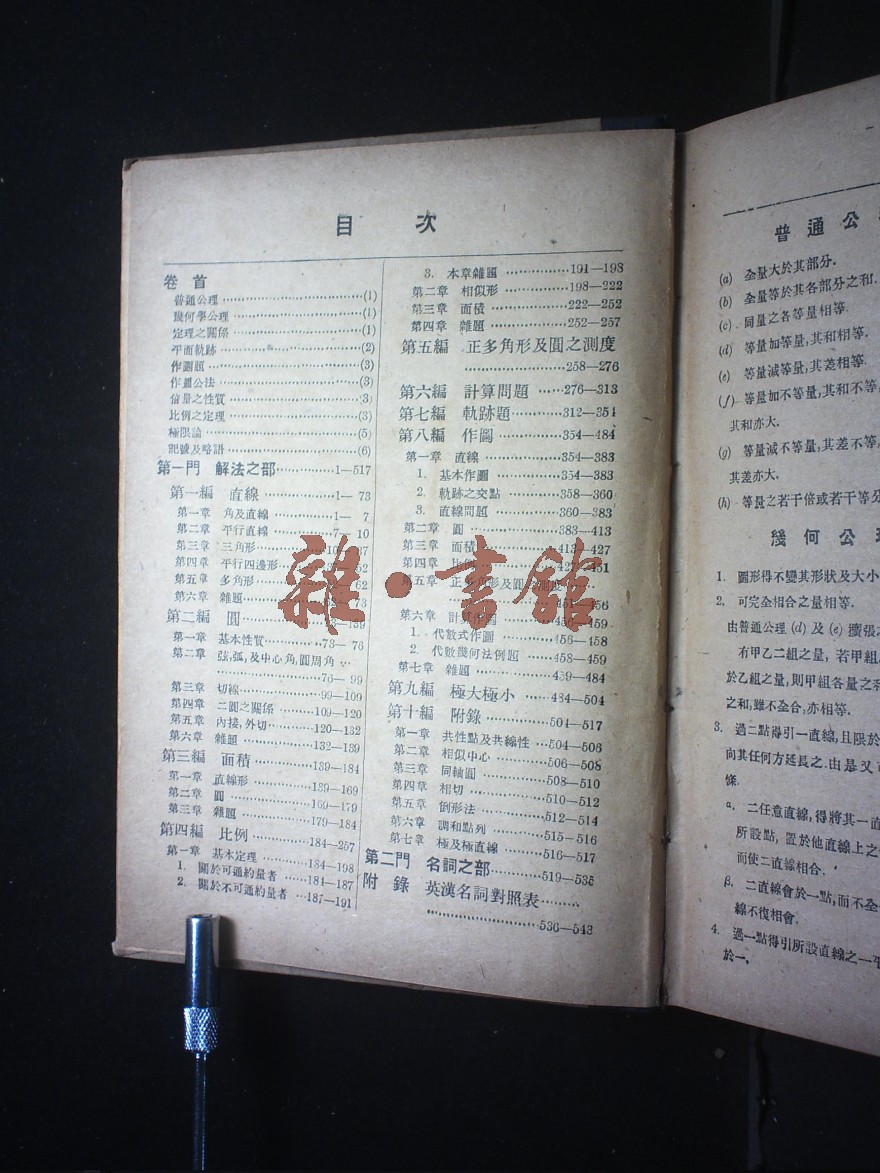 目 次
卷 首
普通公理 (1)
幾何學公理 (1)
定理之關係 (1)
平面軌跡 (2)
作圖題 (3)
作圖公法 (3)
倍量之性質 (3)
比例之定理 (3)
極限論 (5)
記號及略語 (6)
第一門 解法之部 1—517
第一編 直線 1— 73
第一章 角及直線 1— 7
第二章 平行直線 7— 10
第三章 三角形
第四章 平行四邊形
第五章 多角形 62
第六章 雜題 73
第二編 圓
第一章 基本性質 73— 76
第二章 弦,弧,及中心角,圓周角
76— 99
第三章 切線 99—109
第四章 二圓之關係 109—120
第五章 內接,外切 120—132
第六章 雜題 132—139
第三編 面積 139—184
第一章 直線形 139—169
第二章 圓 169—179
第三章 雜題 179—184
第四編 比例 184—257
第一章 基本定理 184—198
1. 關於可通約量者 184—187
2. 關於不可通約量者 187—191
3. 本章雜題 191—198
第二章 相似形 198—222
第三章 面積 222—252
第四章 雜題 252—257
第五編 正多角形及圓之測度
258—276
第六編 計算問題 276—313
第七編 軌跡題 312—354
第八編 作圖 354—484
第一章 直線 354—383
1. 基本作圖 354—383
2. 軌跡之交點 358—360
3. 直線問題 360—383
第二章 圓 383—413
第三章 面積 413—427
第四章 比例 427—451
第五章 正多角形及圓
451—456
第六章 計算作圖 456—459
1. 代數式作圖 456—458
2. 代數幾何法例題 458—459
第七章 雜題 459—484
第九編 極大極小 484—504
第十編 附錄 504—517
第一章 共性點及共線性 504—506
第二章 相似中心 506—508
第三章 同軸圓 508—510
第四章 相切 510—512
第五章 倒形法 512—514
第六章 調和點列 515—516
第七章 極及極直線 516—517
第二門 名詞之部 519—535
附 錄 英漢名詞對照表
536—543
雜·書館
普 通 公
(a) 全量大於其部分.
(b) 全量等於其各部分之和.
(c) 同量之各等量相等.
(d) 等量加等量,其和相等.
(e) 等量減等量,其差相等.
(f) 等量加不等量,其和不等,
其和亦大.
(g) 等量減不等量,其差不等,
其差亦大.
(h) 等量之若干倍或若干等分
幾 何 公
1. 圖形得不變其形狀及大小
2. 可完全相合之量相等.
由普通公理 (d) 及 (e) 擴張之
有甲乙二組之量, 若甲組
於乙組之量,則甲組各量之和
之和,雖不全合,亦相等.
3. 過二點得引一直線,且限於
向其任何方延長之.由是又
條.
α. 二任意直線,得將其一直
所設點, 置於他直線上之
而使二直線相合.
β. 二直線會於一點,而不全
線不復相會.
4. 過一點得引所設直線之一平
於一.